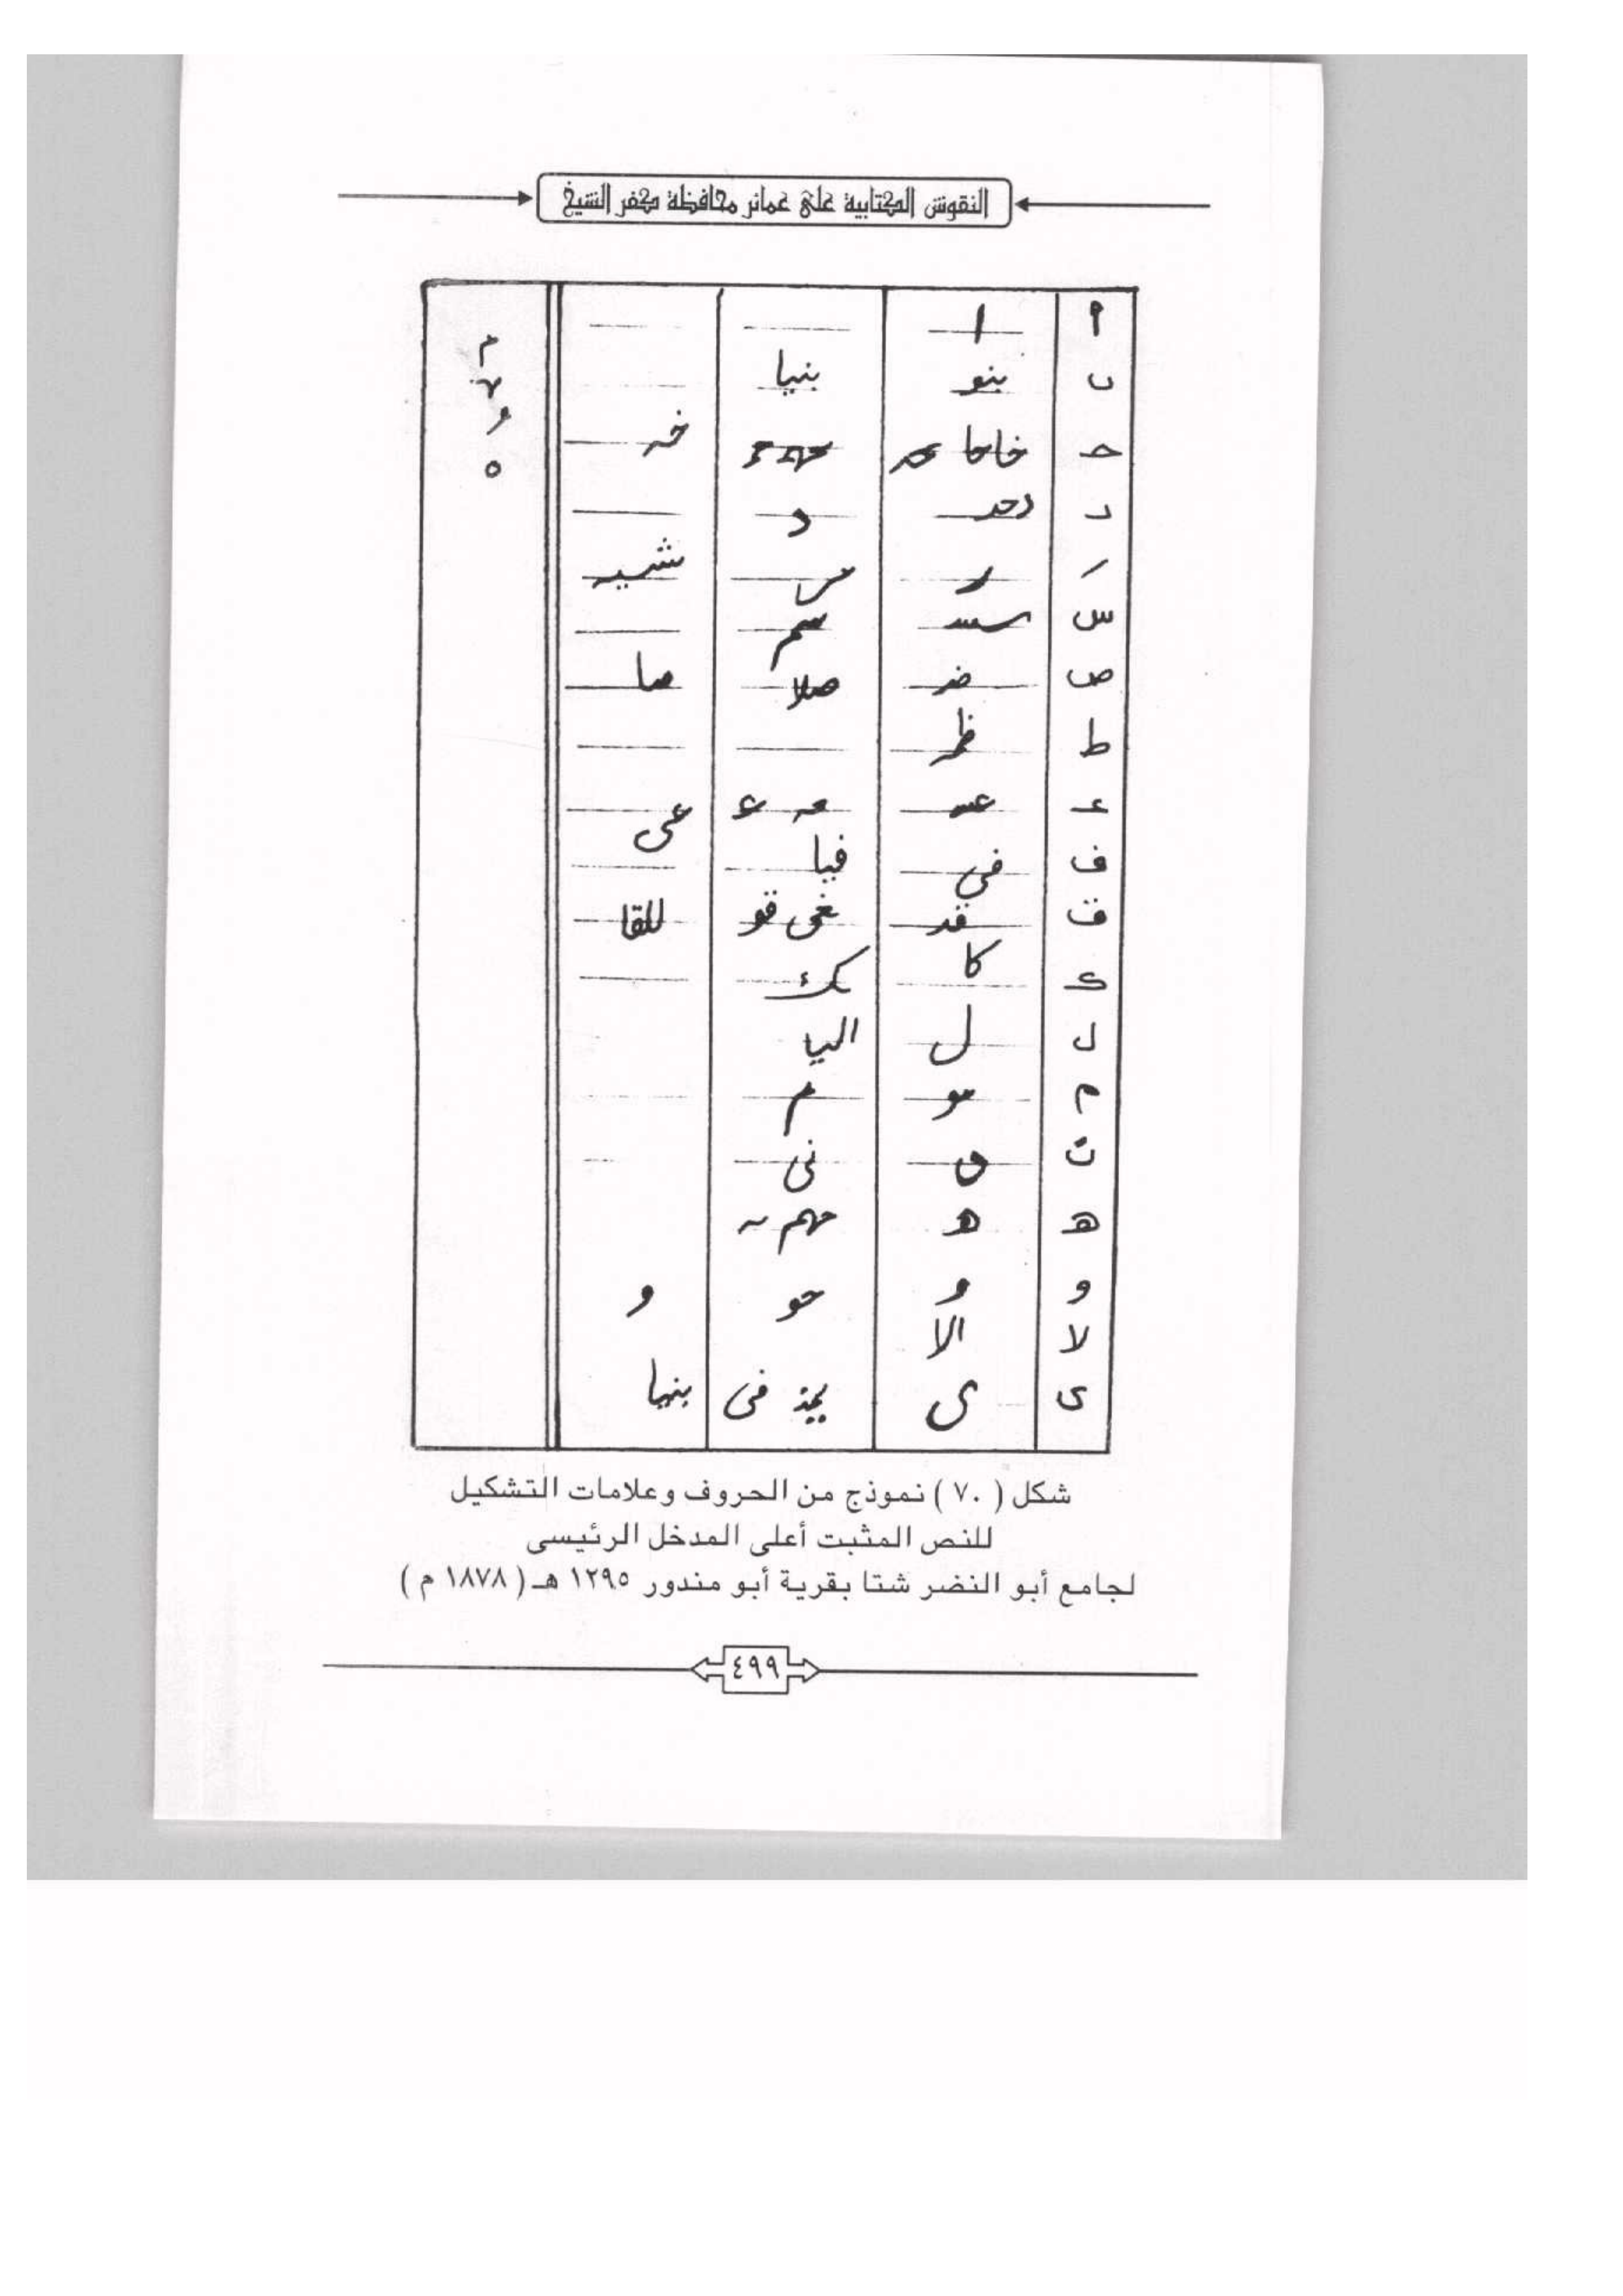 النقوش الكتابية على عمائر محافظة كفر الشيخ
أ ا
ب بنو بنيا
ح خاحا خـ
د د
ر ر شبـ
س سمـ
ص ضر صلا صا
ط ظـ
ع عـ ء عى
ف فى فيا
ق قد قو للقا
ك كا ك
ل ل اليا
م مو م
ن ن نى
هـ هـ
و و حو و
لا الا
ى ى فى بنيا
شكل ( ٧٠ ) نموذج من الحروف وعلامات التشكيل
للنص المثبت أعلى المدخل الرئيسى
لجامع أبو النضر شتا بقرية أبو مندور ١٢٩٥ هـ ( ١٨٧٨ م )
٤٩٩